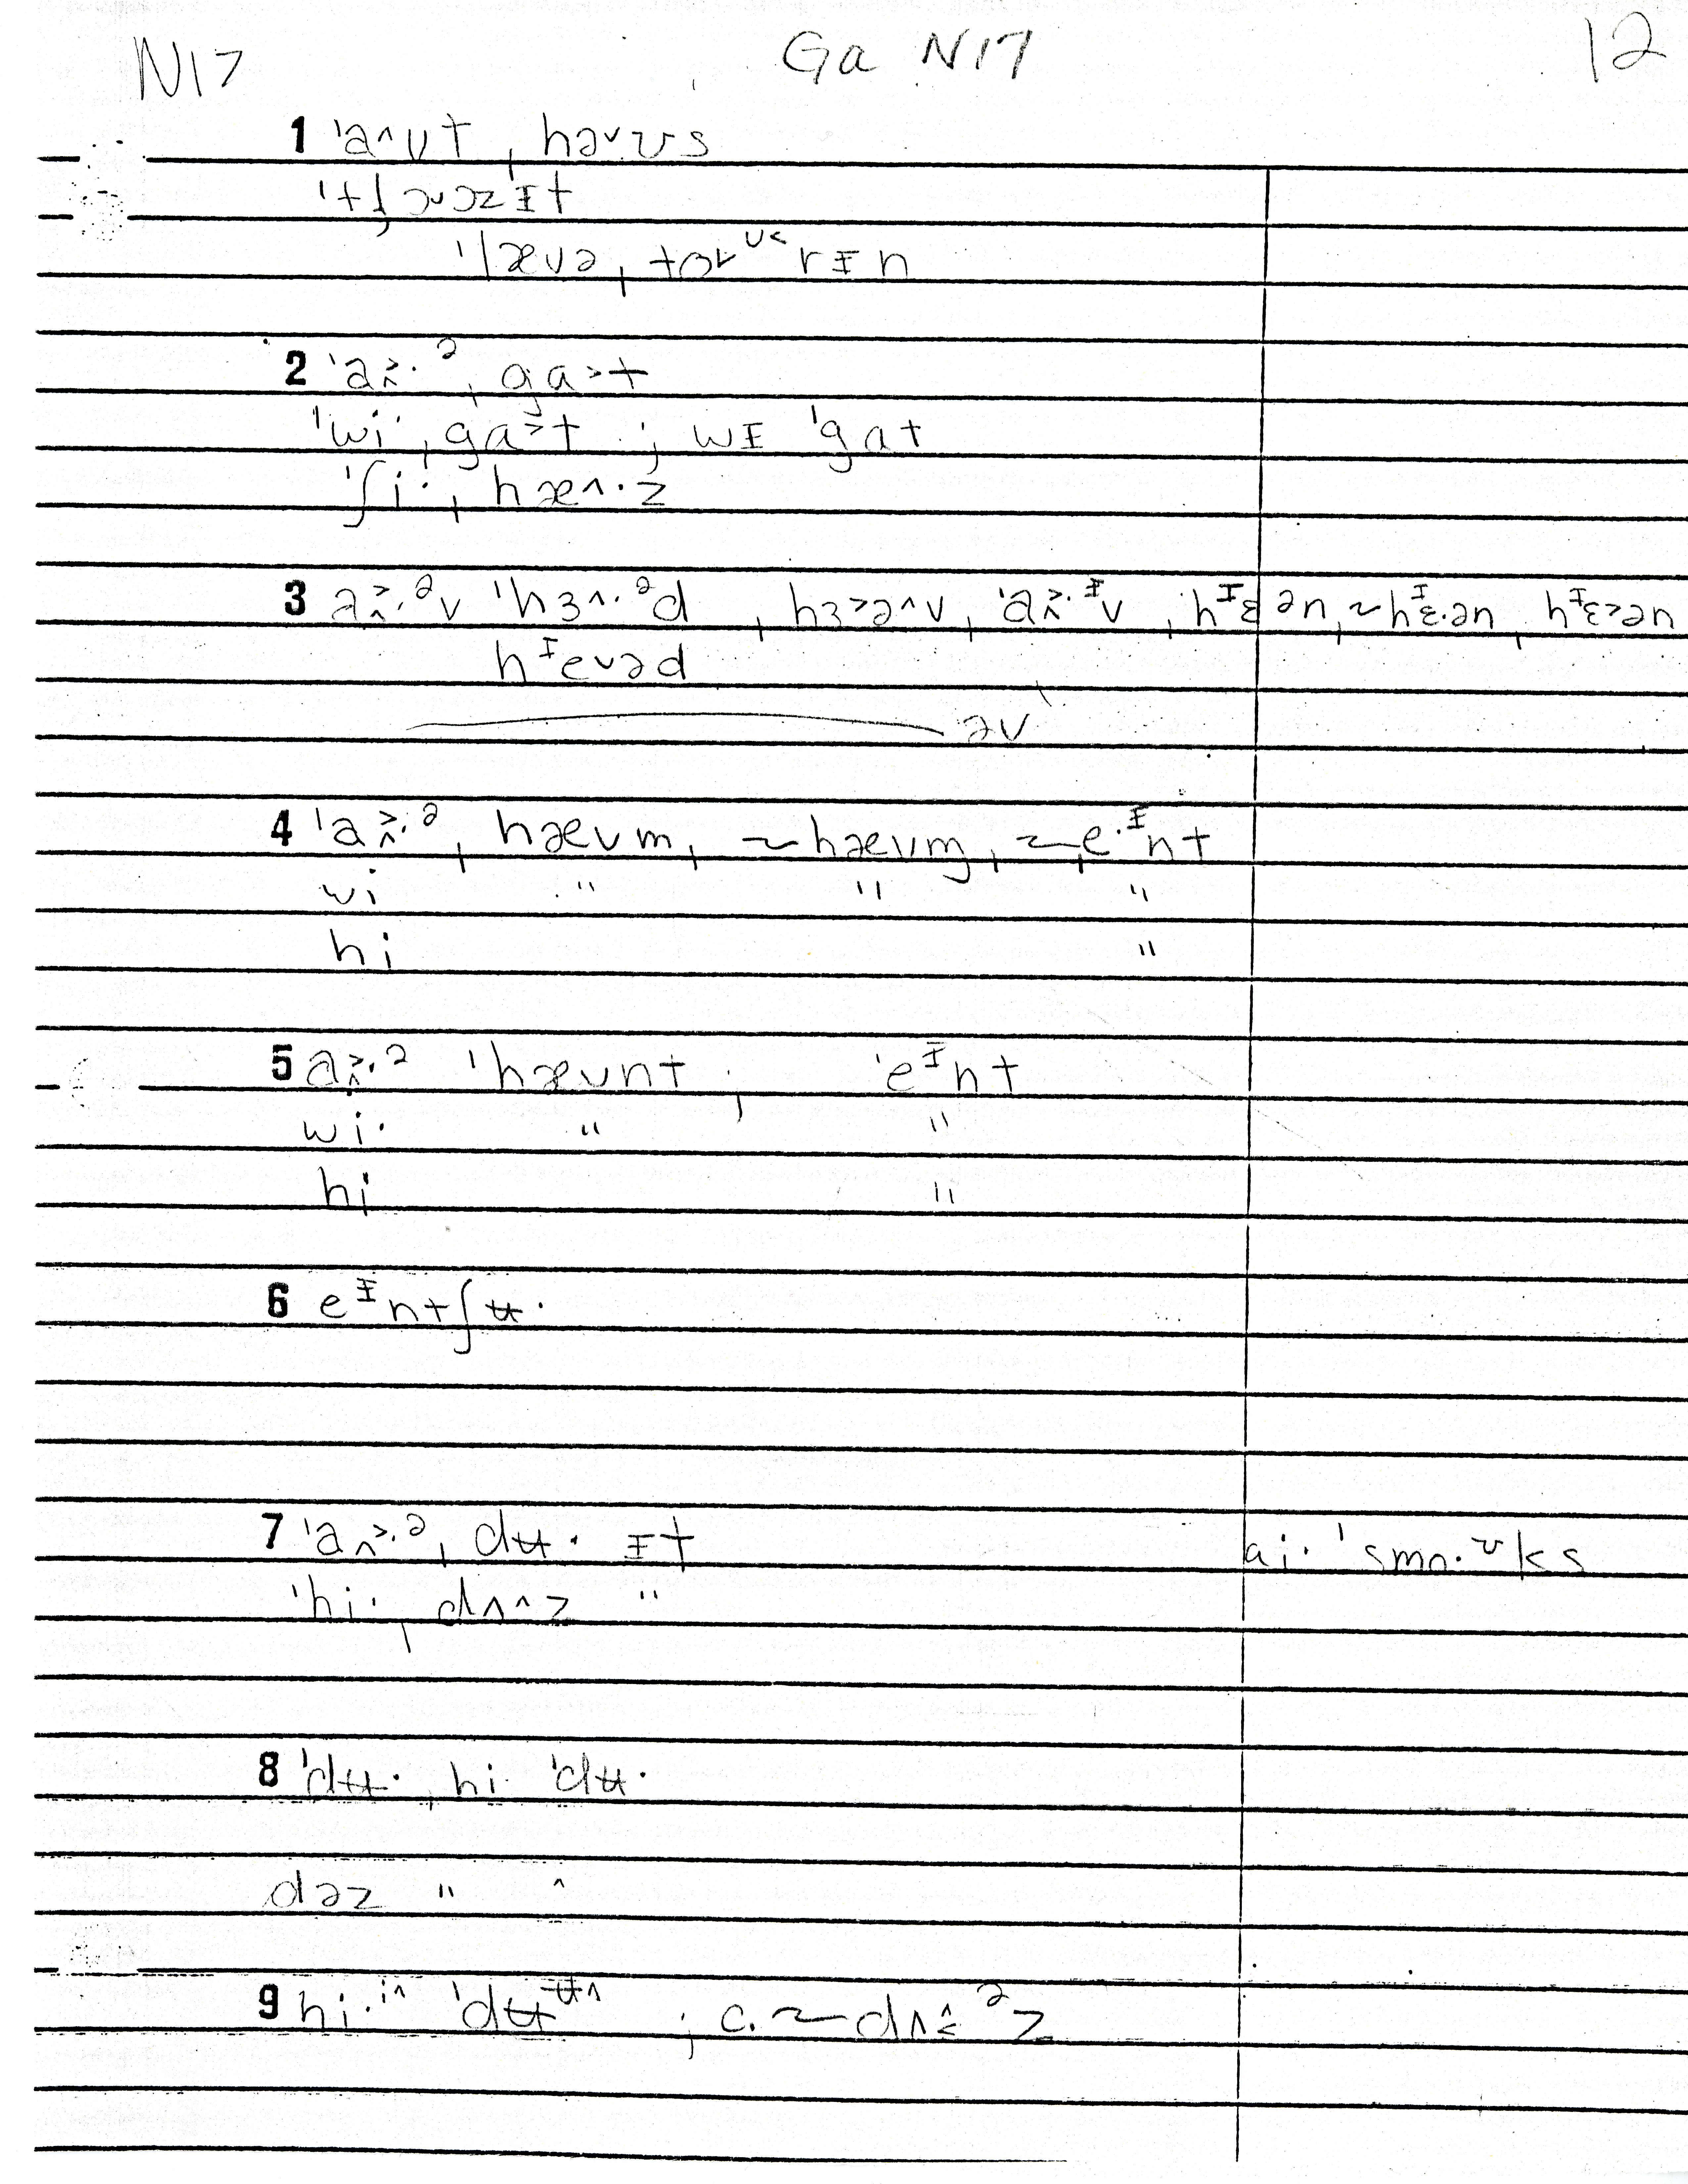 N17 Ga N17 12
1 ˈaʌʊt ˌhəvʊs
ˈtʃɔvɔzɪt
ˈlævəˌtɔvʊ<rɪn
2 ˈa>ʌ·ə ˌga>t
ˈwi·ˌga>t ; wɪ ˈgat
ˈʃi·ˌhæʌ·z
3 a>ʌ·əv ˈhɜʌ·əd ˌhɜ>əʌv, ˈa>ʌ·ɪv ˌhɪɛən, ~hɪɛ·ən, hɪɛ>ən
hɪevəd
əv
4 ˈa>ʌ·ə ˌhævm, ~hævm, ~ˌe·ɪnt
wi " " "
hi "
5 a>ʌ·ə ˈhævnt ; ˈeɪnt
wi· " "
hi "
6 eɪntʃʉ·
7 ˈaʌ>·ə ˌdʉ· ɪt ai· ˈsmo·ʊks
ˈhi·ˌdʌ^z "
8 ˈdʉ· ˌhi· ˈdʉ·
dəz " ^
9 hi·i^ ˈdʉʉ^ ; c. ~ dʌ^<əz